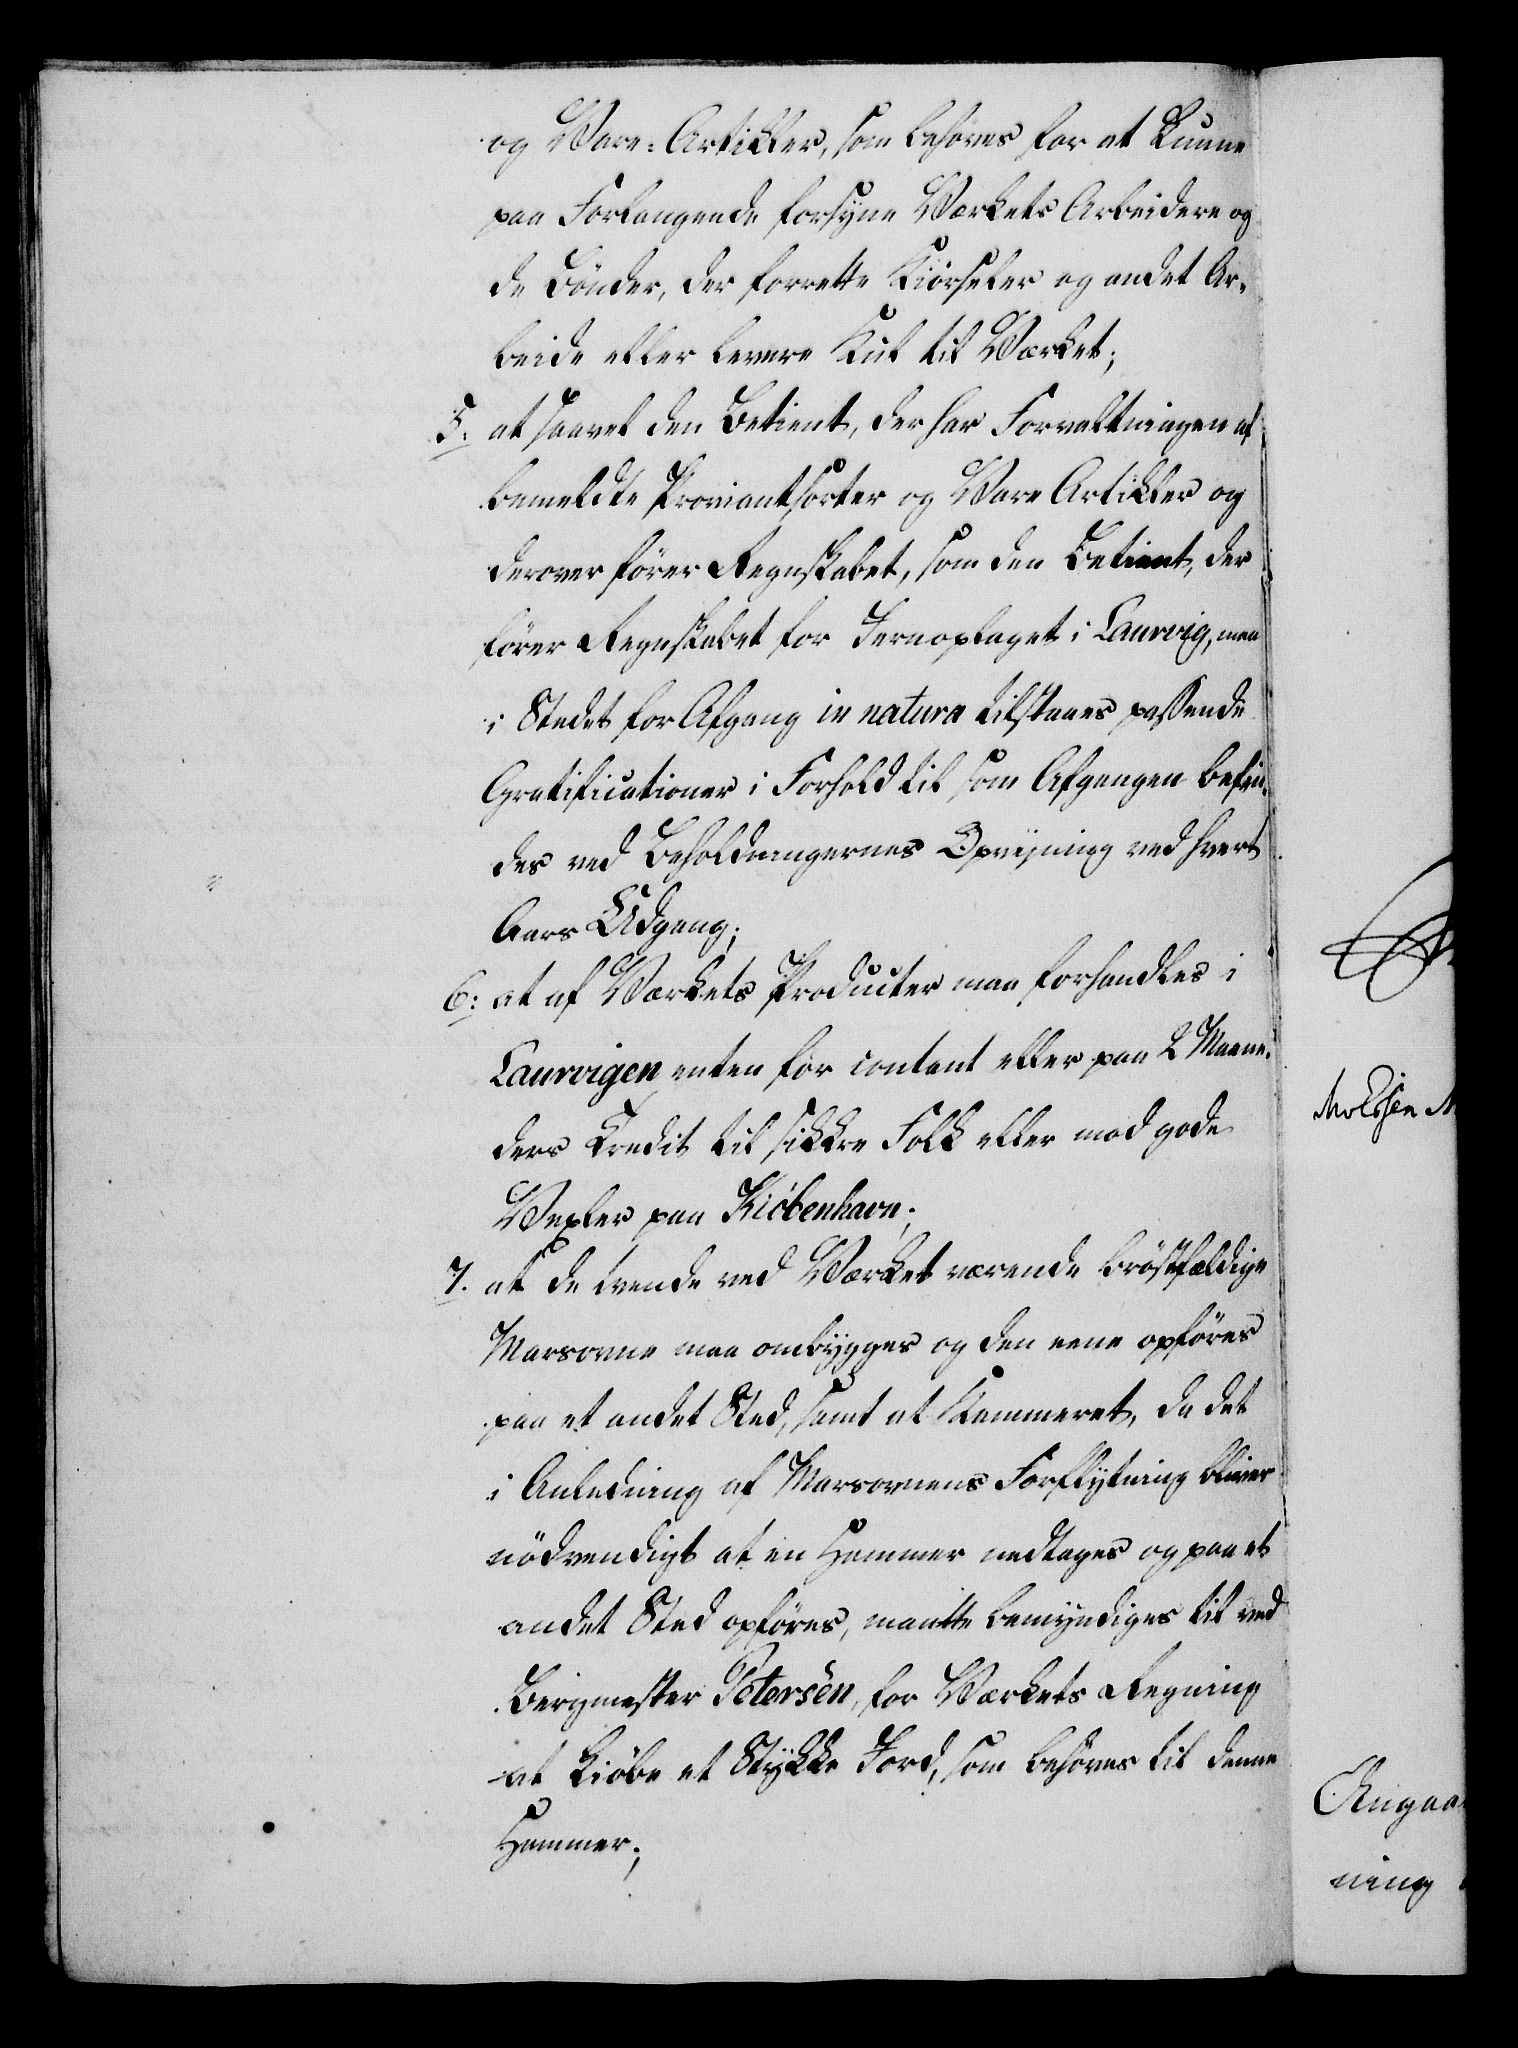 og Vare-Artikler, som behøves for at kunne
paa Forlangende forsyne Værkets Arbeidere og
de Bønder, der forrette Kiørseler og andet Ar-
beide eller levere Kul til Værket;
5. at saavel den Betient, der har Forvaltningen af
bemeldte Proviantsorter og Vare Artikler og
derover fører Regnskabet, som den Betient, der
fører Regnskabet for Jernoplaget i Laurvig, maa
i Stedet for Afgang in natura tilstaaes passende
Gratificationer i Forhold til som Afgangen befin-
des ved Beholdningernes Opvejning ved hvert
Aars Udgang;
6: at af Værkets Producter maa forhandles i
Laurvigen enten for contant eller paa 2 Maane-
ders Credit til sikkre Folk eller mod gode
Vexler paa Kiøbenhavn;
7. at de tvende ved Værket værende brøstfældige
Marsovne maa ombygges og den eene opføres
paa et andet Sted, samt at Kammeret, da det
i Anledning af Marsovnens Forflytning bliver
nödvendigt at en Hammer nedtages og paa et
andet Sted opføres, maatte bemyndiges til ved
Bergmester Petersen, for Værkets Regning
at kiöbe et Stykke Jord, som behøves til denne
Hammer;
Angaa
ning